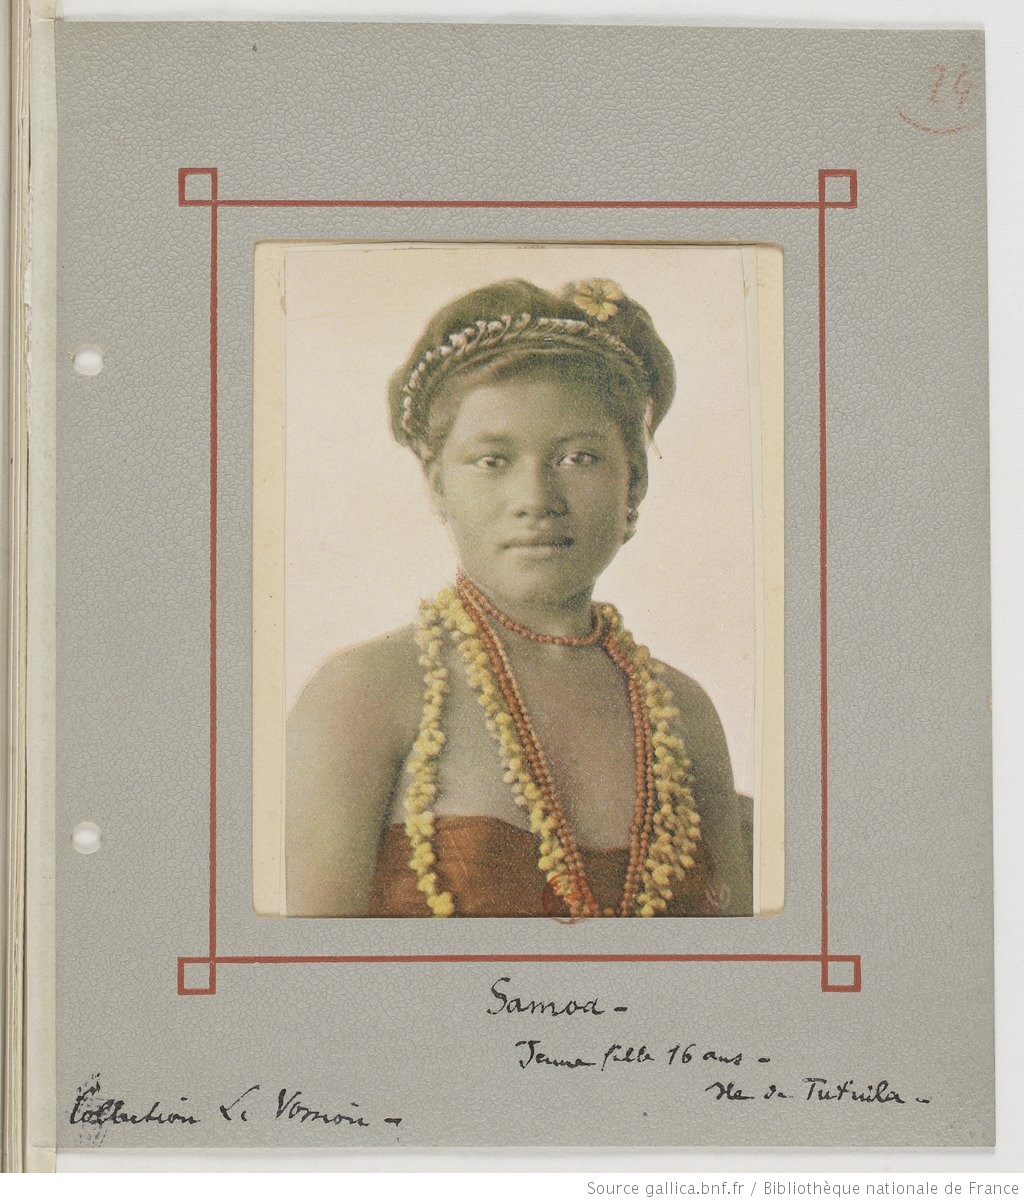 24
Samoa -
Jeune fille 16 ans -
Ile de Tutuila -
Collection Le Vossion -
Source gallica.bnf.fr / Bibliothèque nationale de France